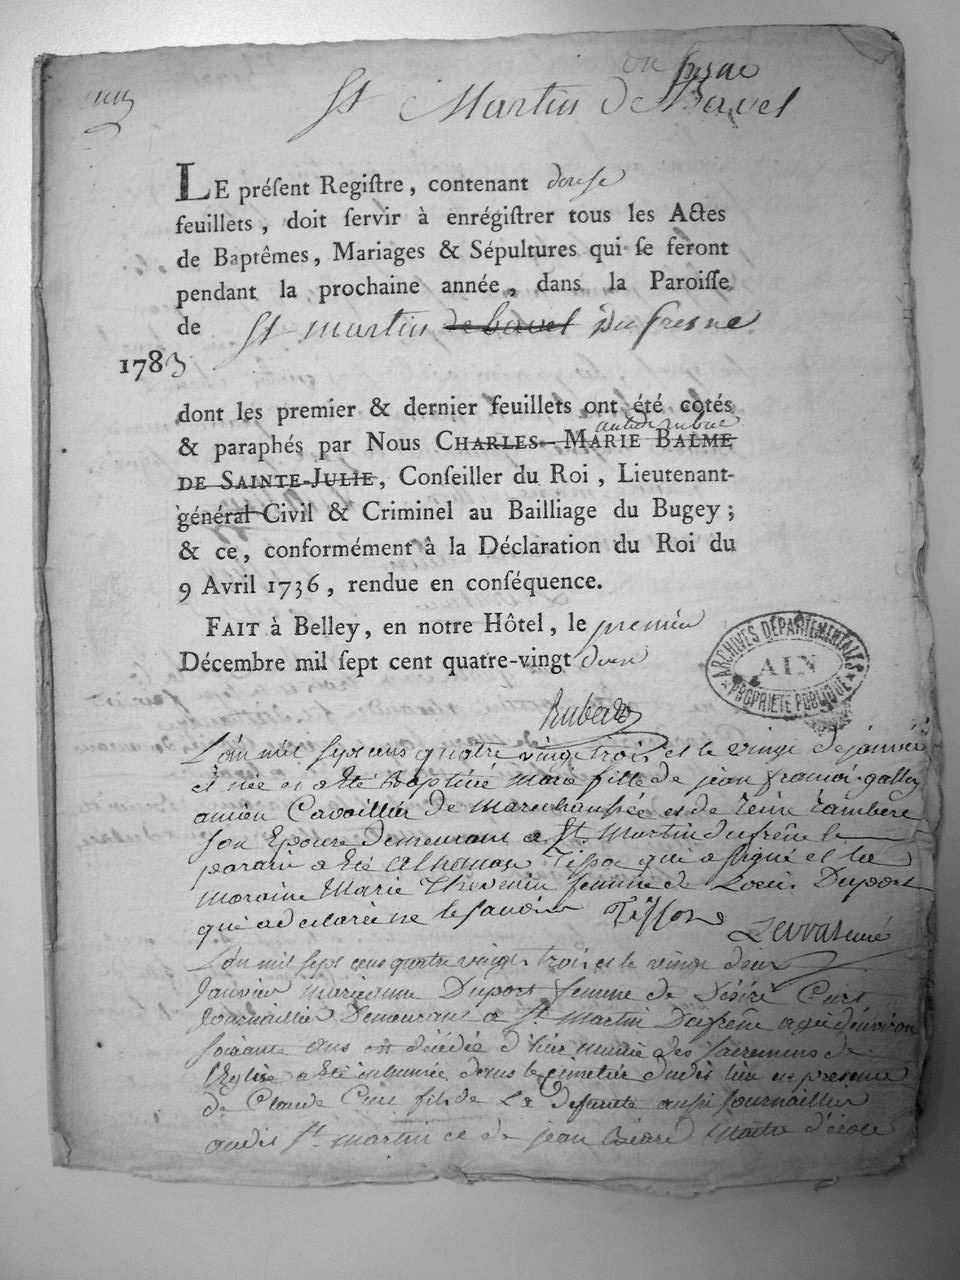 du fresne
St Martin de Bavel
LE préſent Regiſtre, contenant douse
feuillets, doit ſervir à enrégiſtrer tous les Actes
de Baptêmes, Mariages & Sépultures qui ſe feront
pendant la prochaine année, dans la Paroiſſe
de St martin de bavel du fresne
1783
dont les premier & dernier feuillets ont été cotés
& paraphés par Nous CHARLES-MARIE BALME
DE SAINTE-JULIE, Conſeiller du Roi, Lieutenant-
général Civil & Criminel au Bailliage du Bugey;
& ce, conformément à la Déclaration du Roi du
9 Avril 1736, rendue en conſéquence.
FAIT à Belley, en notre Hôtel, le premier
Décembre mil ſept cent quatre-vingt deux
ARCHIVES DÉPARTEMENTALES
AIN
PROPRIÉTÉ PUBLIQUE
L'an mil sept cens quatre vingt trois et le vingt de janvier
est née et a été Baptisée fille de jean françois
ancien Cavailler de Marechaussée et de Reine
son Epouse demeurant a St Martin dufrêne le
parain a été qui a signé et la
maraine Marie Thevenin femme de Louis Duport
qui a declarée ne le savoir Tissot
L'an mil sept cens quatre vingt trois et le vingt deux
Janvier marianne Duport femme de Désiré Curt
Journaillier Demeurant a St Martin Dufrêne agée d'environ
soixante ans est décédée d'hier munie des sacremens de
l'Eglise a été inhumée dans le cimetier dudit lieu en presence
de Claude Curt fils de La Defunte aussi Journaillier
audit St martin et de jean Béard Maitre d'école